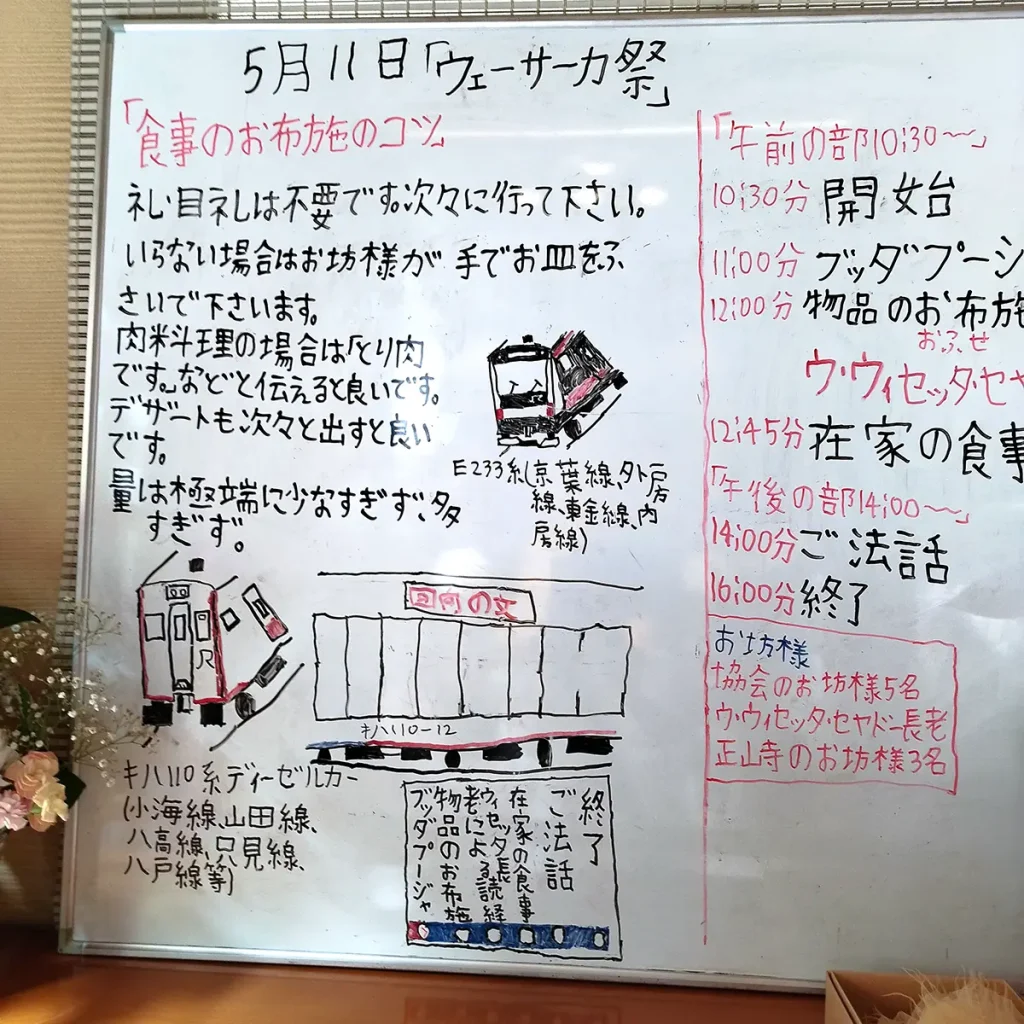 5月11日「ウェーサーカ祭」
「食事のお布施のコツ」
礼・目礼は不要です。次々に行って下さい。
いらない場合はお坊様が 手でお皿をふ
さいで下さいます。
肉料理の場合は「とり肉
です。」などと伝えると良いです。
デザートも次々と出すと良い
です。
量は極端に少なすぎず、多
すぎず。
E233系(京葉線、外房
線、東金線、内
房線)
回向の文
キハ110-12
キハ110系ディーゼルカー
(小海線、山田線、
八高線、只見線、
八戸線等)
終了
ご法話
在家の食事
ウィセッタ長
老による読経
物品のお布施
ブッダプージャ
「午前の部10:30〜」
10:30分 開始
11:00分 ブッダプーシ
12:00分 物品のお布施
おふせ
ウ・ウィセッタ・セヤ
12:45分 在家の食事
「午後の部14:00〜」
14:00分 ご法話
16:00分 終了
お坊様
協会のお坊様5名
ウ・ウィセッタ・セヤドー長老
正山寺のお坊様3名